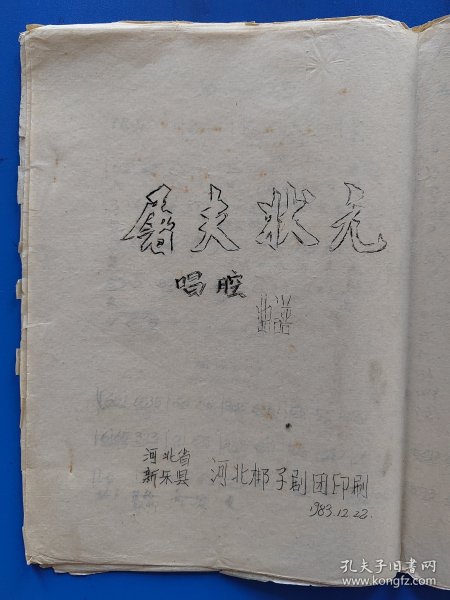 屠夫状元
唱腔
曲谱
河北省
新乐县
河北梆子剧团印刷
1983.12.23.
孔夫子旧书网
www.kongfz.com